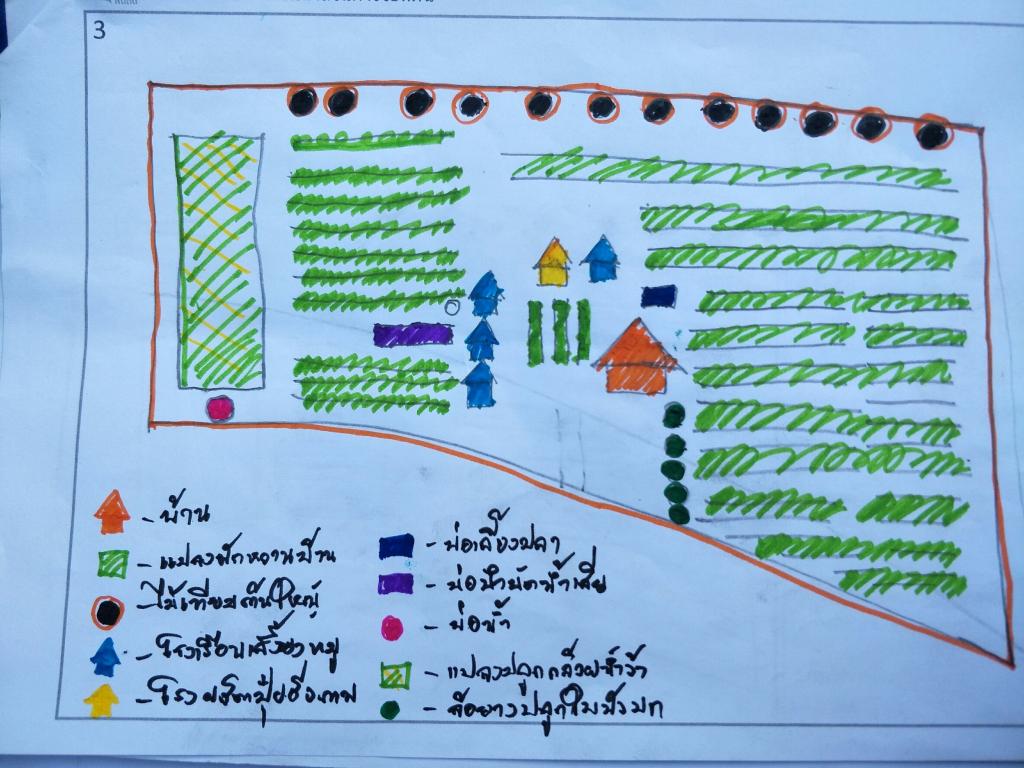 3
- บ้าน
- แปลงผักหวานบ้าน
- ไม้เทียมต้นใหญ่
- โรงเรือนเลี้ยงหมู
- โรงผลิตปุ๋ยชีวภาพ
- บ่อเลี้ยงปลา
- บ่อบำบัดน้ำเสีย
- บ่อน้ำ
- แปลงปลูกกล้วยน้ำว้า